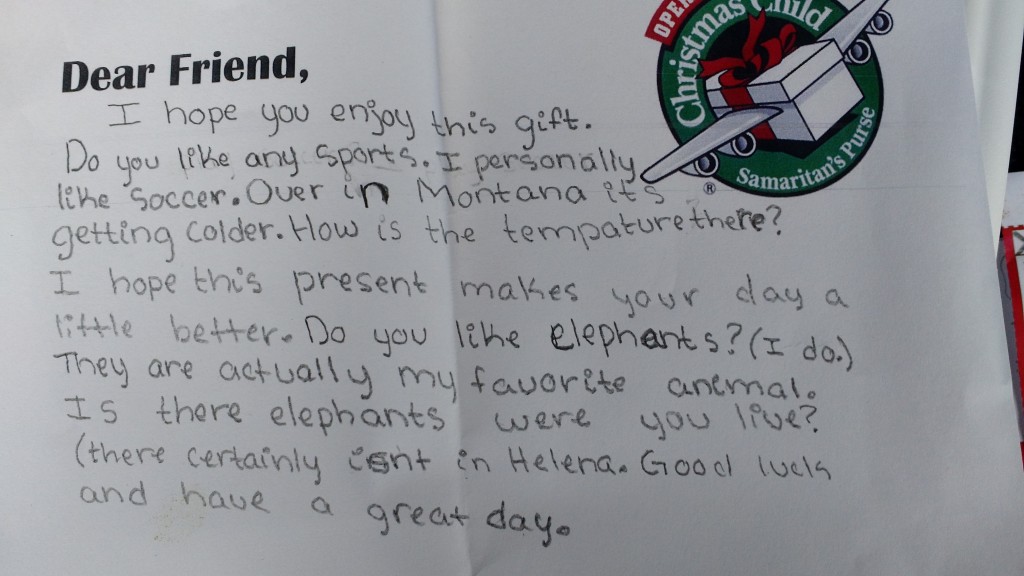 OPER
Christmas Child
Samaritan's Purse
®
Dear Friend,
I hope you enjoy this gift.
Do you like any sports. I personally
like soccer. Over in Montana it's
getting colder. How is the tempature there?
I hope this present makes your day a
little better. Do you like elephants? (I do.)
They are actually my favorite animal.
Is there elephants were you live?
(there certainly isnt in Helena. Good luck
and have a great day.